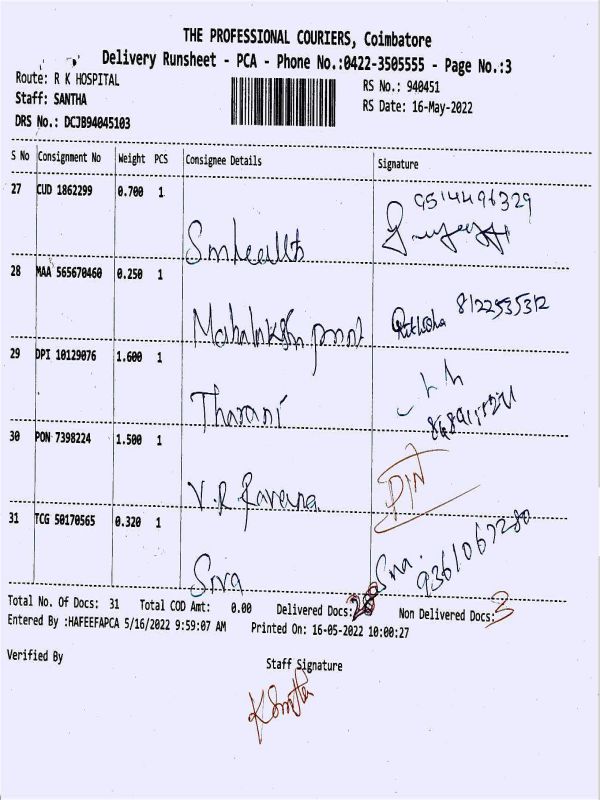 THE PROFESSIONAL COURIERS, Coimbatore
Delivery Runsheet - PCA - Phone No.:0422-3505555 - Page No.:3
Route: R K HOSPITAL
RS No.: 940451
Staff: SANTHA
RS Date: 16-May-2022
DRS No.: DCJB94045103
S No Consignment No Weight PCS Consignee Details Signature
27 CUD 1862299 0.700 1
9514496329
Smhealth
28 MAA 565670460 0.250 1
8122535312
Mahalakshmi
29 DPI 10129076 1.600 1
Tharani
30 PON 7398224 1.500 1
V.R. Raveena
31 TCG 50170565 0.320 1
9361067280
Siva
Total No. Of Docs: 31 Total COD Amt: 0.00 Delivered Docs: 28 Non Delivered Docs: 3
Entered By :HAFEEFAPCA 5/16/2022 9:59:07 AM Printed On: 16-05-2022 10:00:27
Verified By
Staff Signature